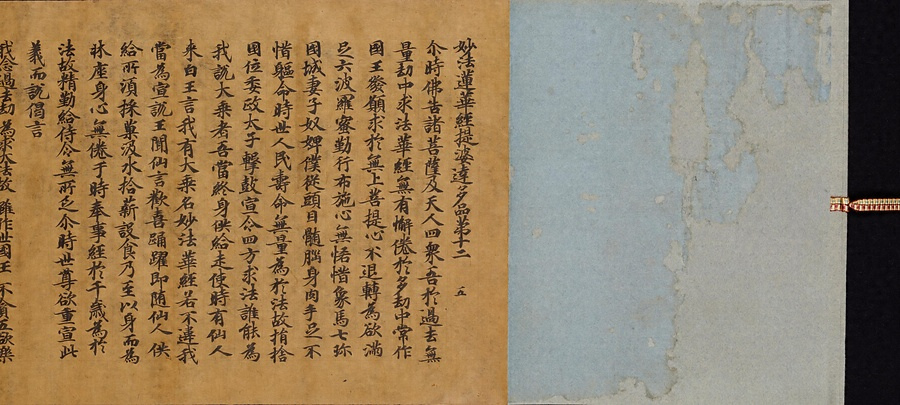 妙法蓮華經提婆達多品第十二　五
尒時佛告諸菩薩及天人四衆吾於過去無
量劫中求法華經無有懈倦於多劫中常作
國王發願求於無上菩提心不退轉為欲滿
足六波羅蜜勤行布施心無悋惜象馬七珎
國城妻子奴婢僕從頭目髓腦身肉手足不
惜軀命時世人民壽命無量為於法故捐捨
國位委政太子擊鼓宣令四方求法誰能為
我說大乘者吾當終身供給走使時有仙人
來白王言我有大乘名妙法華經若不違我
當為宣說王聞仙言歡喜踊躍即随仙人供
給所湏採菓汲水拾薪設食乃至以身而為
牀座身心無倦于時奉事經於千歲為於
法故精勤給侍令無所乏尒時世尊欲重宣此
義而說偈言
我念過去劫　為求大法故　雖作世國王　不貪五欲樂